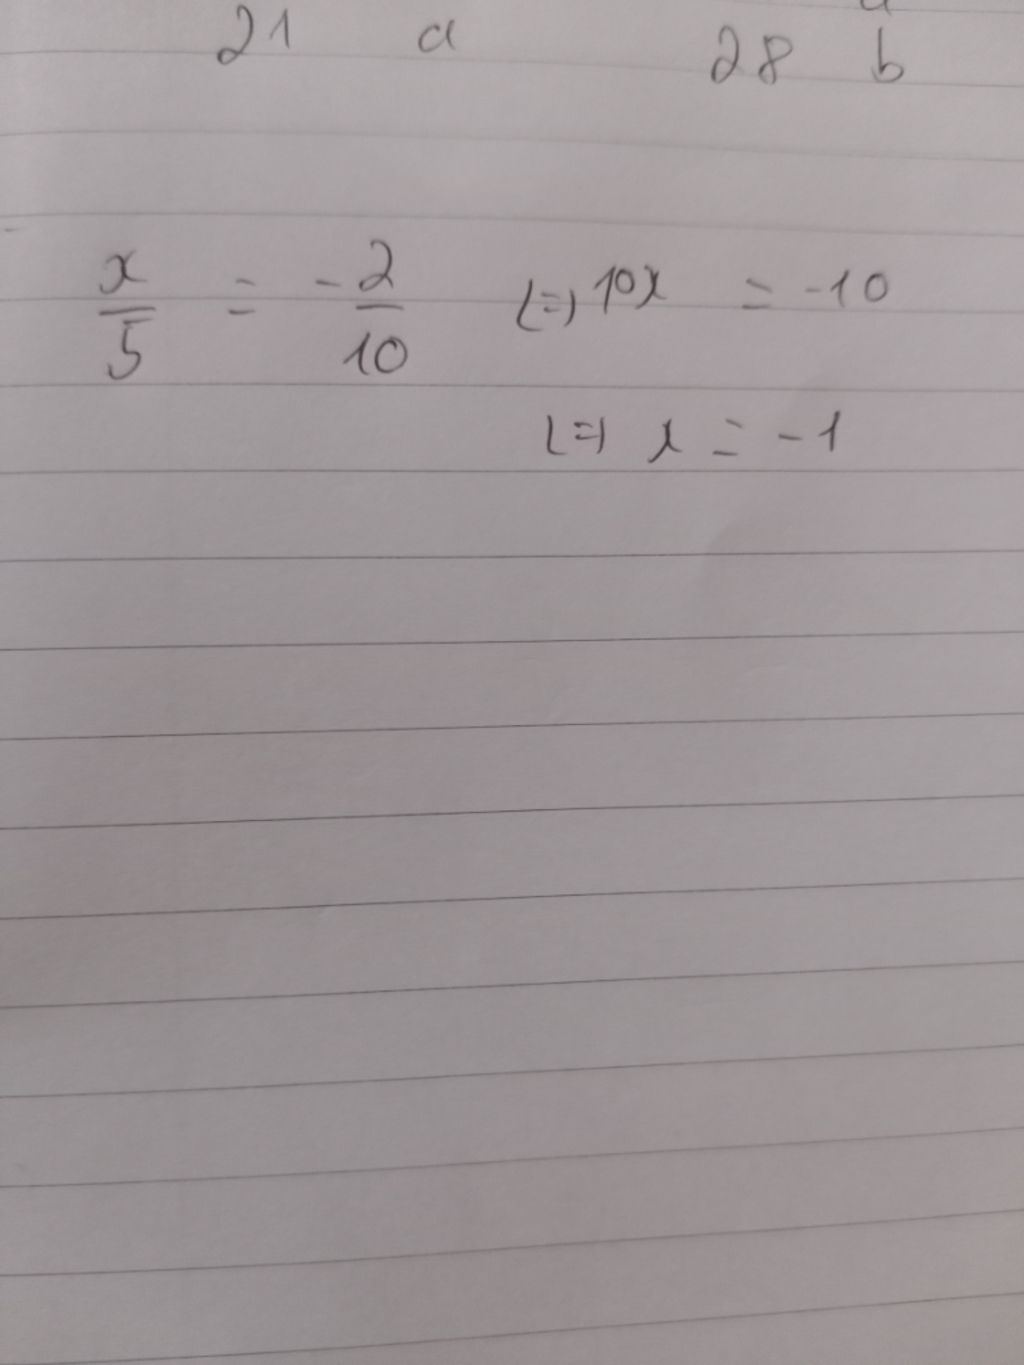 21 a 28 b
x/5 = -2/10 (=) 10x = -10
(=) x = -1